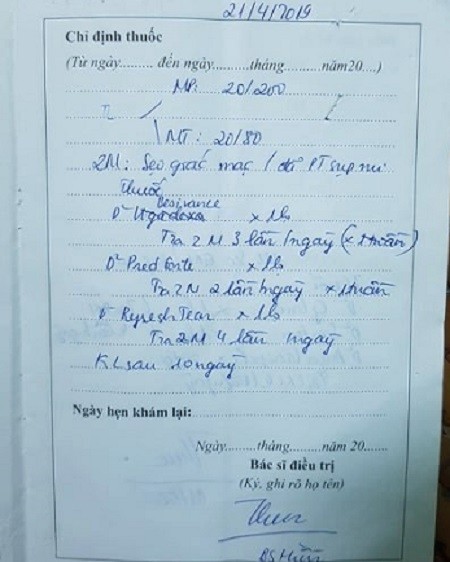 21/4/2019
Chỉ định thuốc
(Từ ngày......... đến ngày.........tháng.........năm20....)
MP: 20/200
TL
MT: 20/80
2M: Sẹo giác mạc / đã PT sụp mi
Thuốc
Besivance
D² x 1lọ
Tra 2M 3 lần/ngày (x 1 tuần)
D² Pred forte x 1lọ
Tra 2M 2 lần/ngày x 1 tuần
D² Refresh Tear x 1lọ
Tra 2M 4 lần ngày
KL sau 10 ngày
Ngày hẹn khám lại:
Ngày.........tháng.........năm 20.......
Bác sĩ điều trị
(Ký, ghi rõ họ tên)